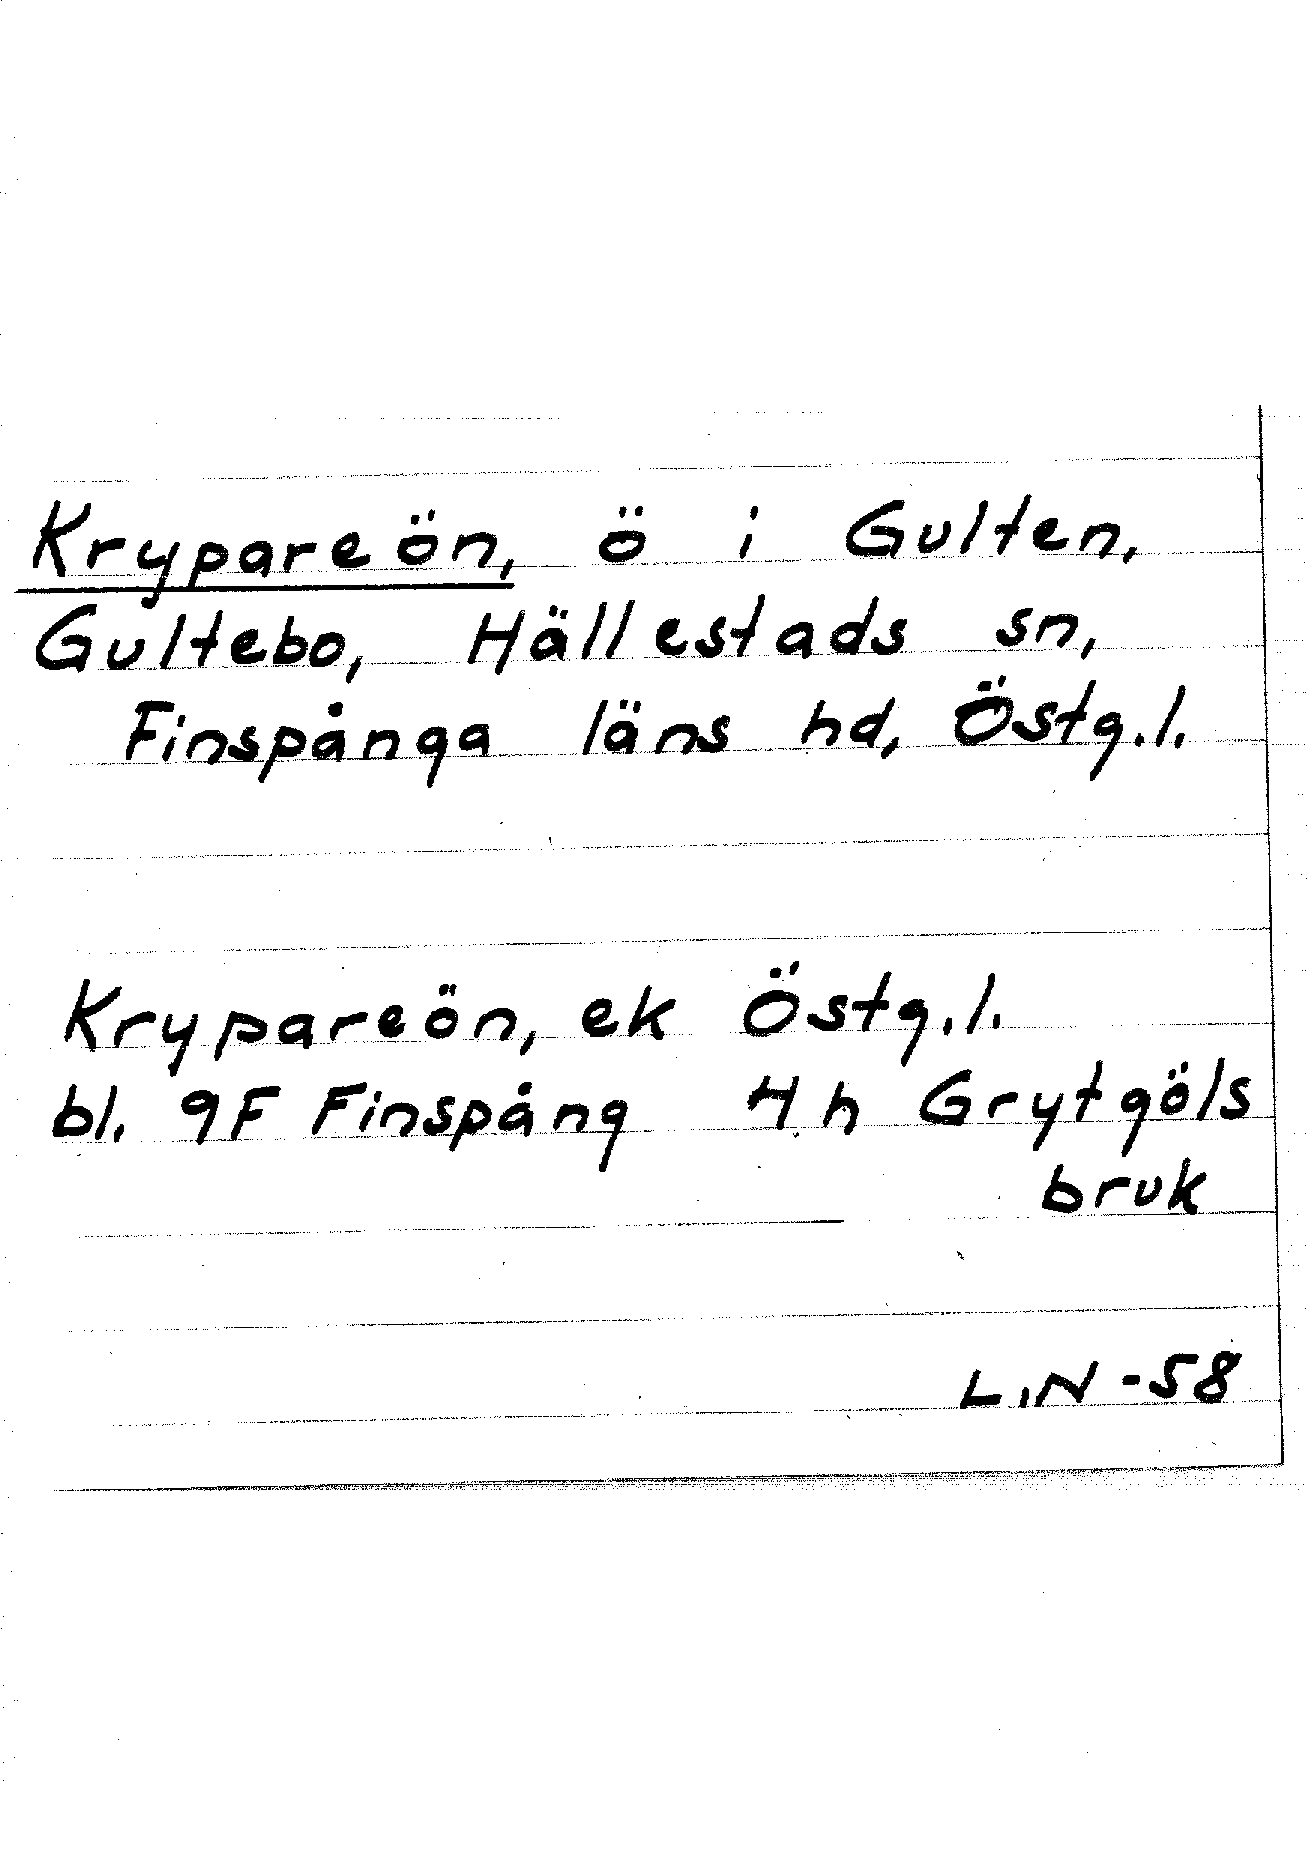 Krypareön, ö i Gulten,
Gultebo, Hällestads sn,
Finspånga läns hd, Östg.l.
Krypareön, ek Östg.l.
bl. 9F Finspång 4h Grytgöls
bruk
L.N -58